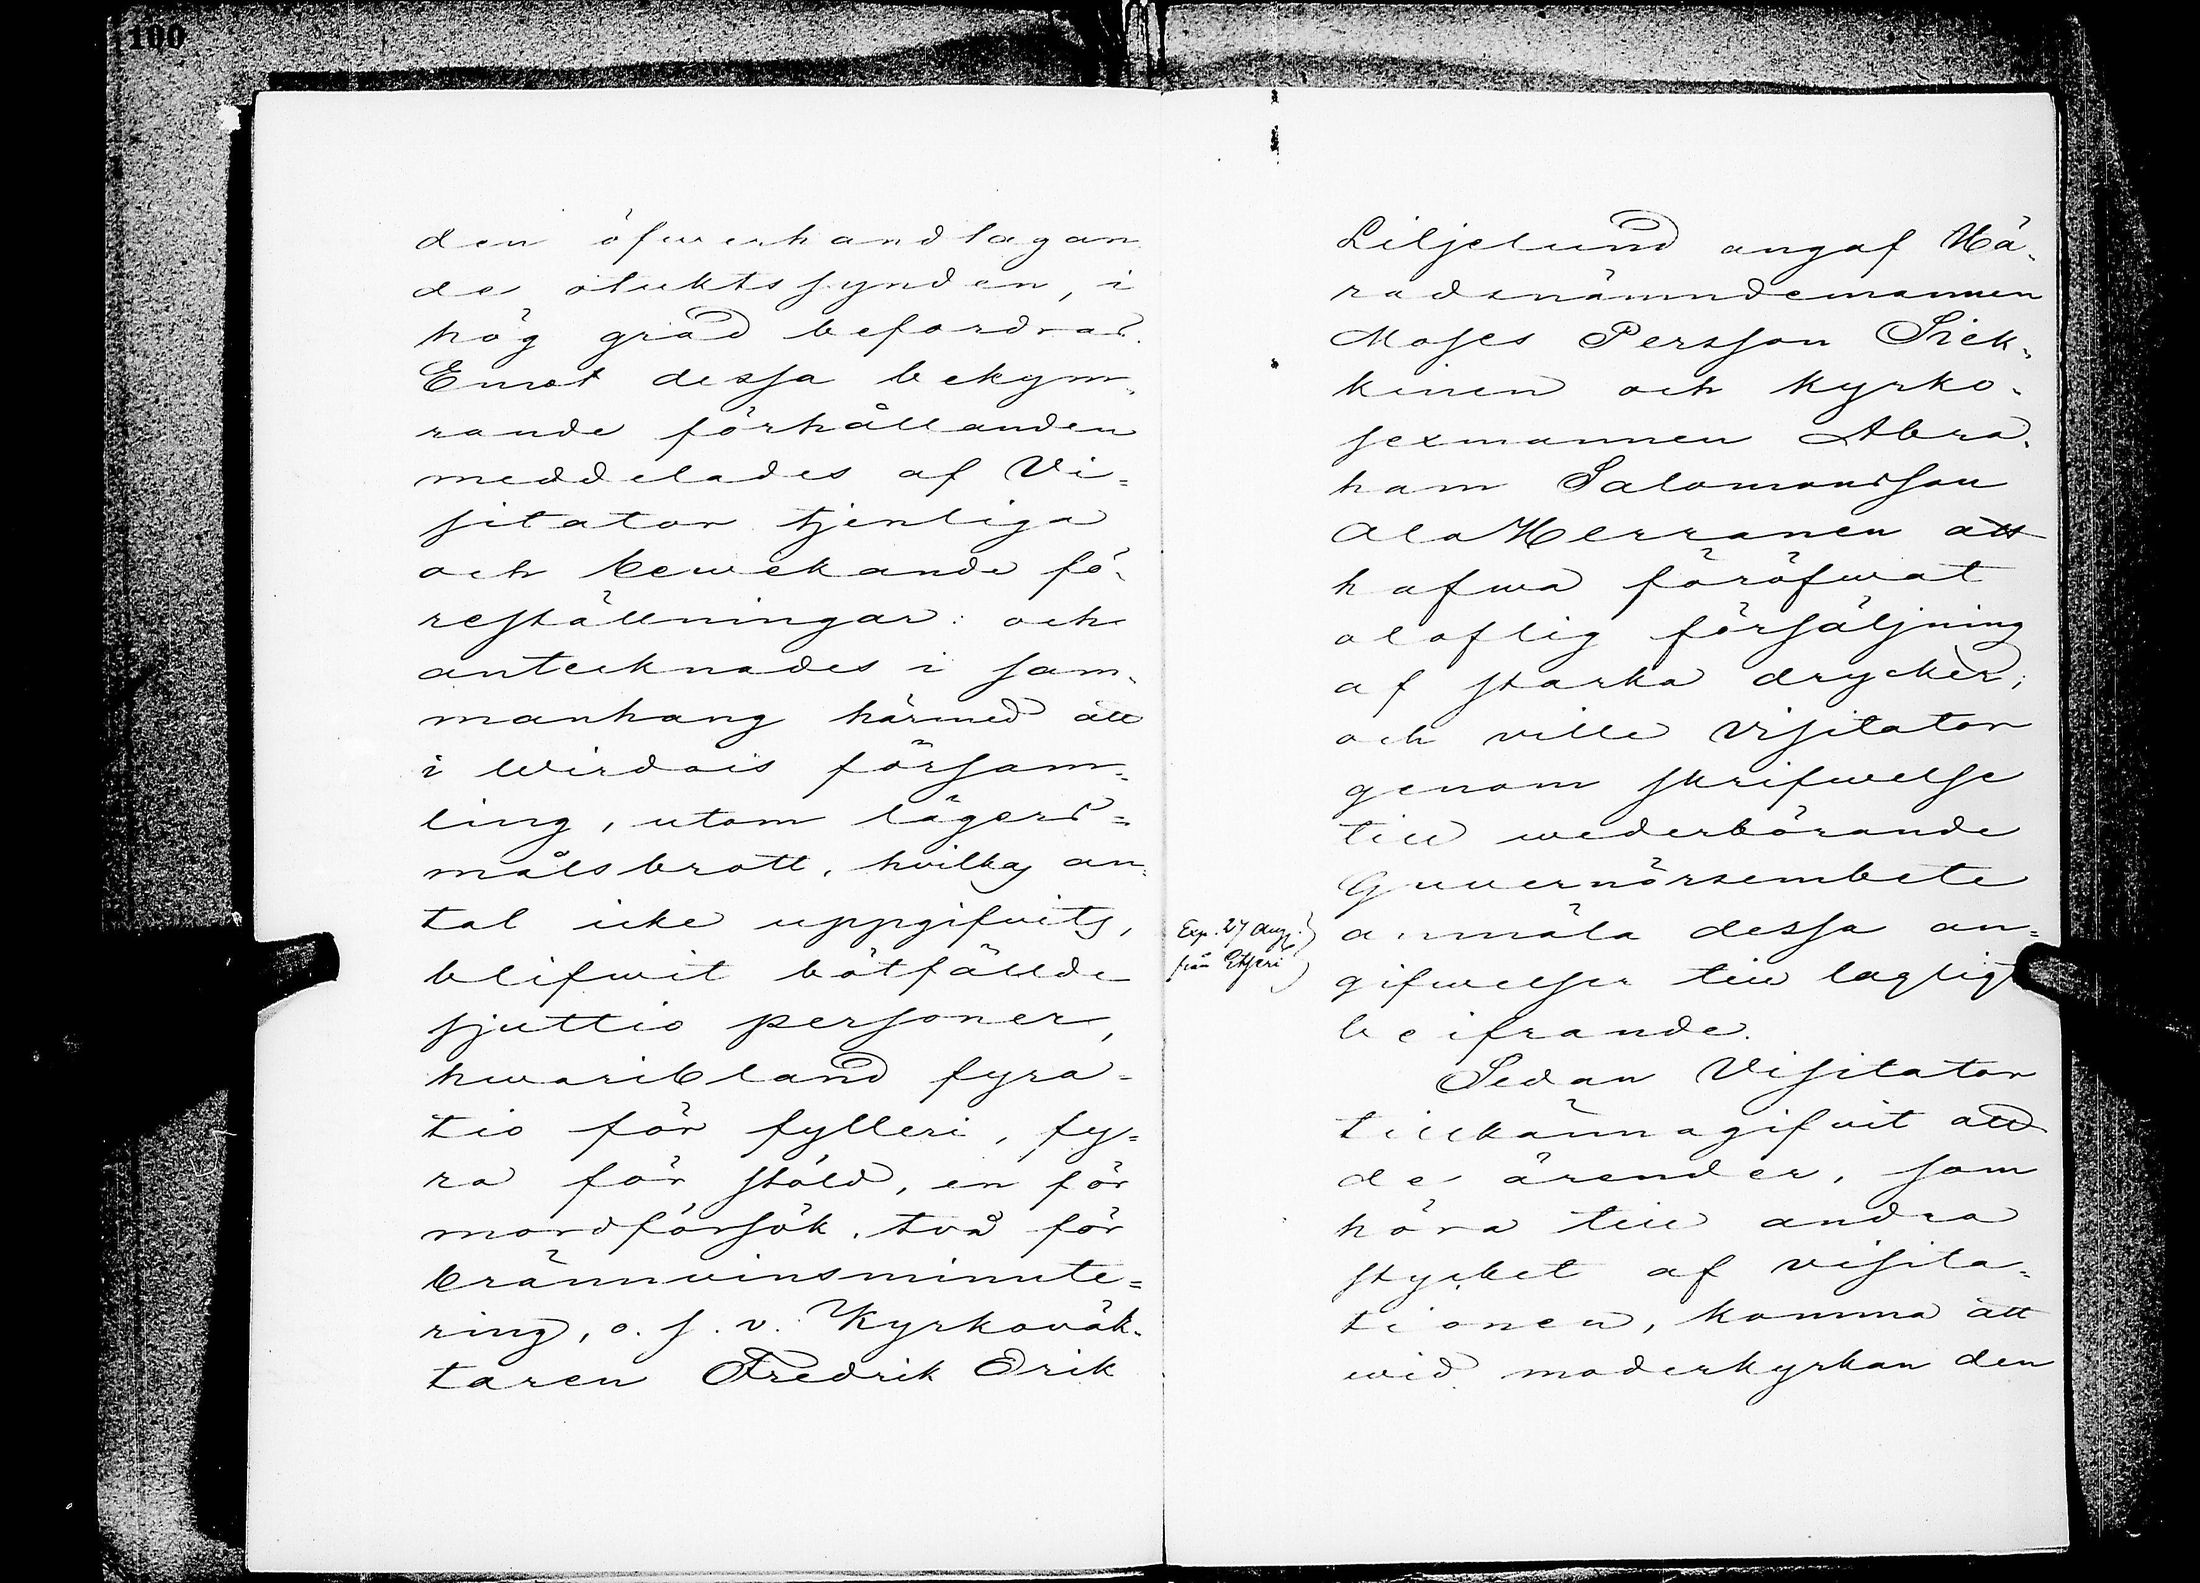 100
den öfwerhandtagan
de otuktssynden, i
hög grad befordras.
Emot dessa bekym-
rande förhållanden
meddelades af Vi=
sitator tjenliga
och bewekande fö-
reställningar: och
antecknades i sam-
manhang härmed att
i Wirdois försam=
ling, utom lägers=
målsbrott, hvilkas an-
tal icke uppgifvits,
blifwit bötfällde
sjuttio personer,
hwaribland fyra-
tio för fylleri, fy=
ra för stöld, en för
mordförsök, två för
brännvinsminute=
ring, o. s. v. Kyrkoväk-
taren Fredrik Erik
Liljelund angaf Hä-
radsnämndemannen
Moses Persson Siek-
kinen och kyrko-
sexmannen Abra-
ham Salomonsson
AlaHerranen att
hafwa föröfwat
olaflig försäljning
af starka drycker;
och ville Visitator
genom skrifwelse
till wederbörande
Guvernörsembete
anmäla dessa an=
gifwelser till lagligt
beifrande.
Exp. 27 Aug.
från Etseri
Sedan Visitator
tillkännagifvit att
de ärender, som
höra till andra
stycket af visita-
tionen, komma att
wid moderkyrkan den